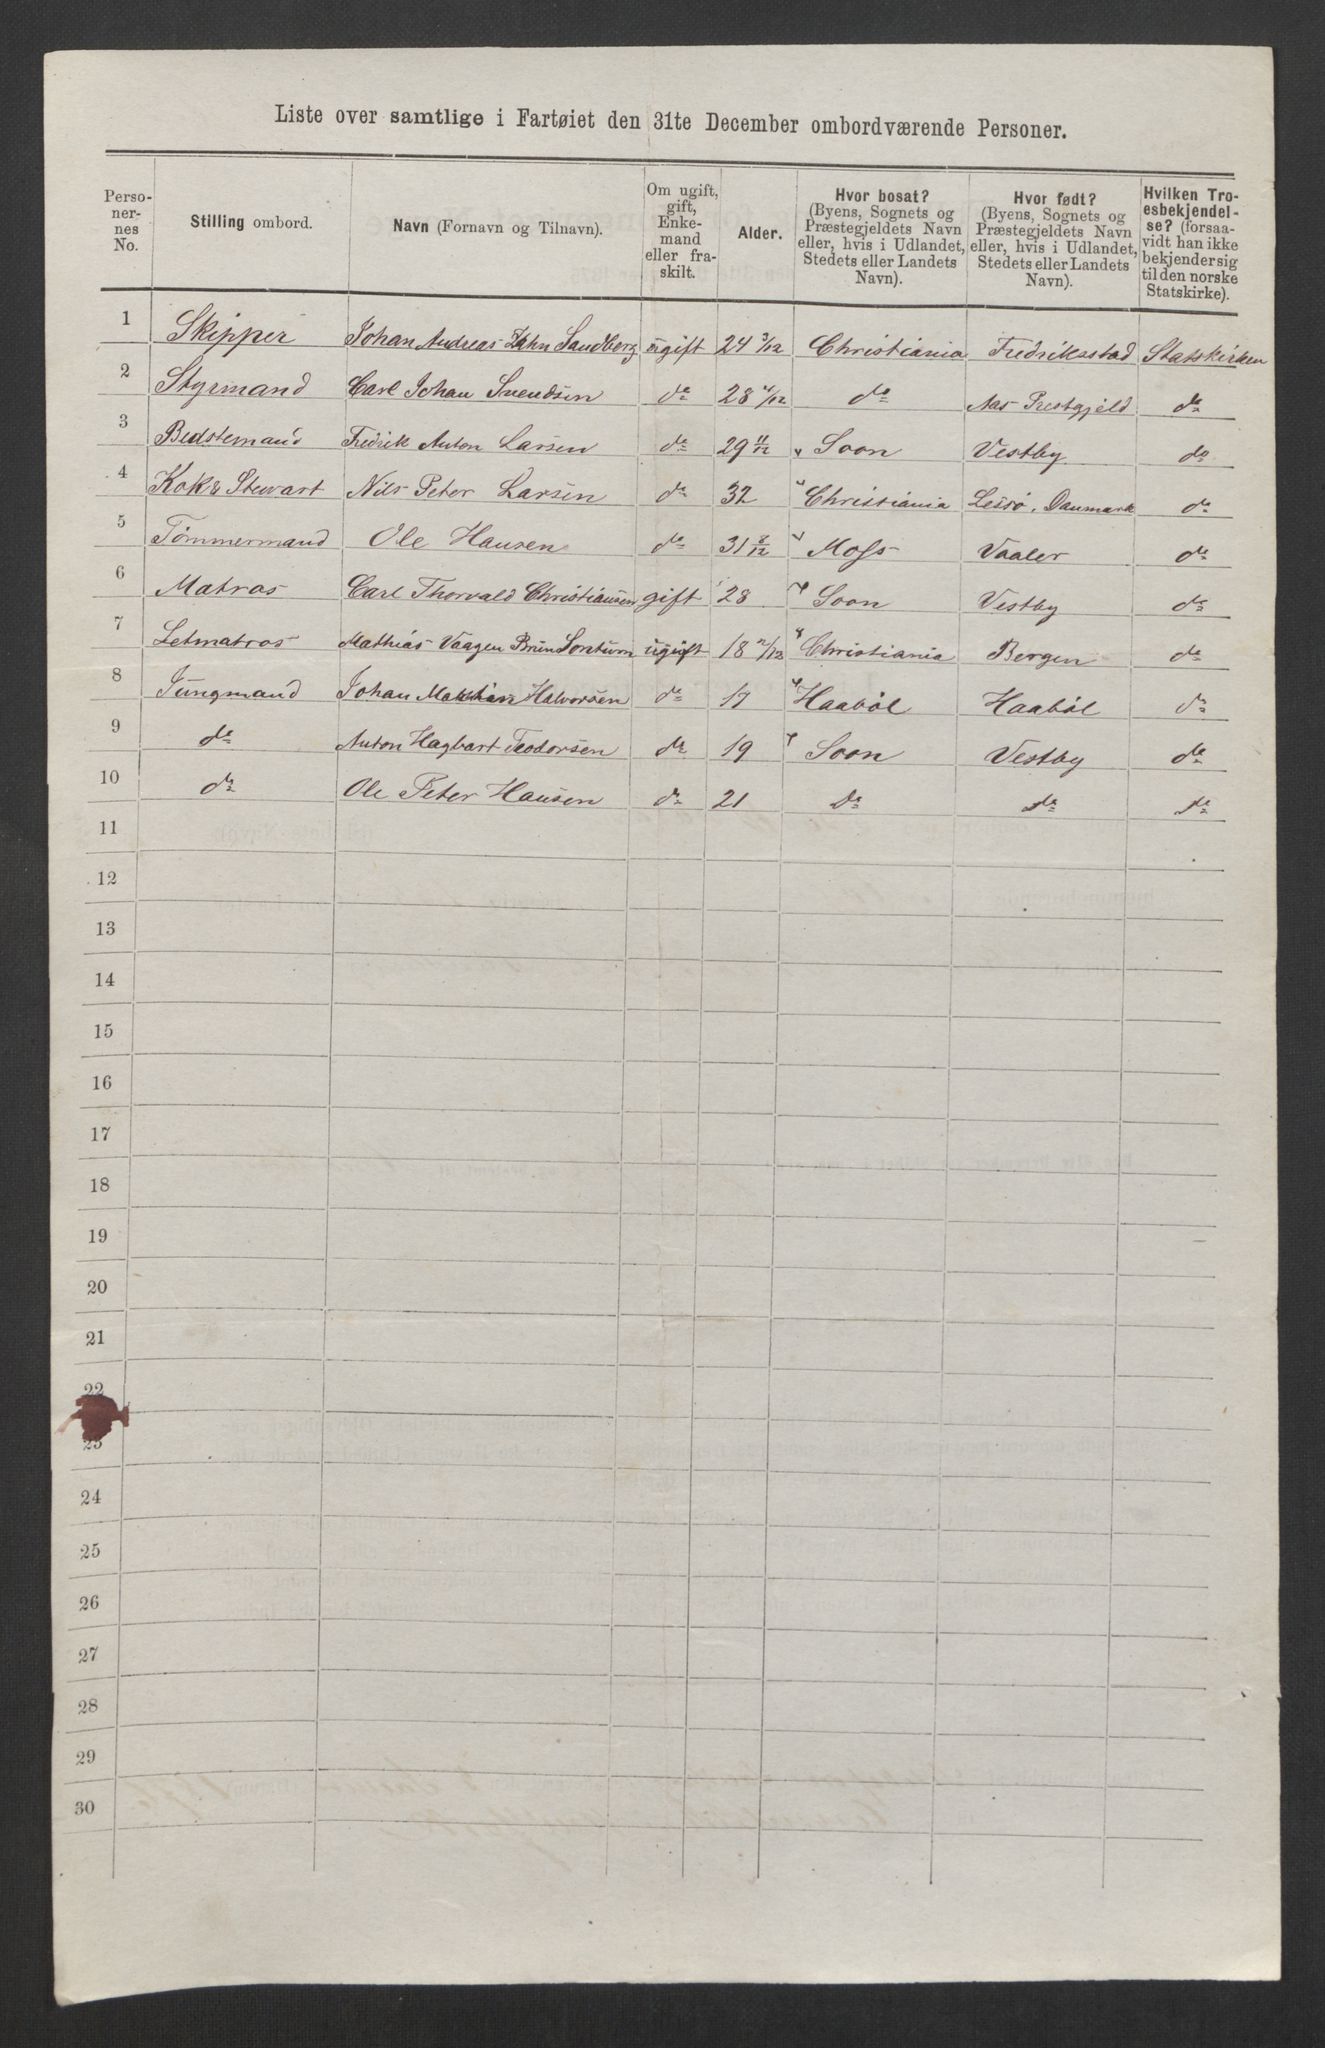 Liste over samtlige i Fartøiet den 31te December ombordværende Personer.
Perso-
ner-
nes
No.
Stilling ombord.
Navn (Fornavn og Tilnavn).
Om ugift,
gift,
Enke-
mand
eller fra-
skilt.
Alder.
Hvor bosat?
(Byens, Sognets og
Præstegjeldets Navn
eller, hvis i Udlandet,
Stedets eller Landets
Navn).
Hvor født?
(Byens, Sognets og
Præstegjeldets Navn
eller, hvis i Udlandet,
Stedets eller Landets
Navn).
Hvilken Tro-
esbekjendel-
se? (forsaa-
vidt han ikke
bekjender sig
til den norske
Statskirke).
1 Skipper Johan Andreas Sandberg ugift 24 3/12 Christiania Fredriksstad Statskirken
2 Styrmand Carl Johan Svendsen do 28 4/12 do Aas Prestgjeld do
3 Bedstemand Fredrik Anton Larsen do 29 11/12 " Soon Vestby do
4 Kok & Stewart Nils Peter Larsen do 32 " Christiania Lessö, Danmark do
5 Tömmermand Ole Hansen do 31 8/12 " Moss Vaaler do
6 Matros Carl Thorvald Christiansen gift 28 " Soon Vestby do
7 Letmatros Mathias Vaagen Brun ugift 18 2/12 " Christiania Bergen do
8 Jungmand Johan Halvorsen do 17 " Haaböl Haaböl do
9 do Anton Hagbart Teodorsen do 19 " Soon Vestby do
10 do Ole Peter Hansen do 21 Do do do
11
12
13
14
15
16
17
18
19
20
21
22
23
24
25
26
27
28
29
30